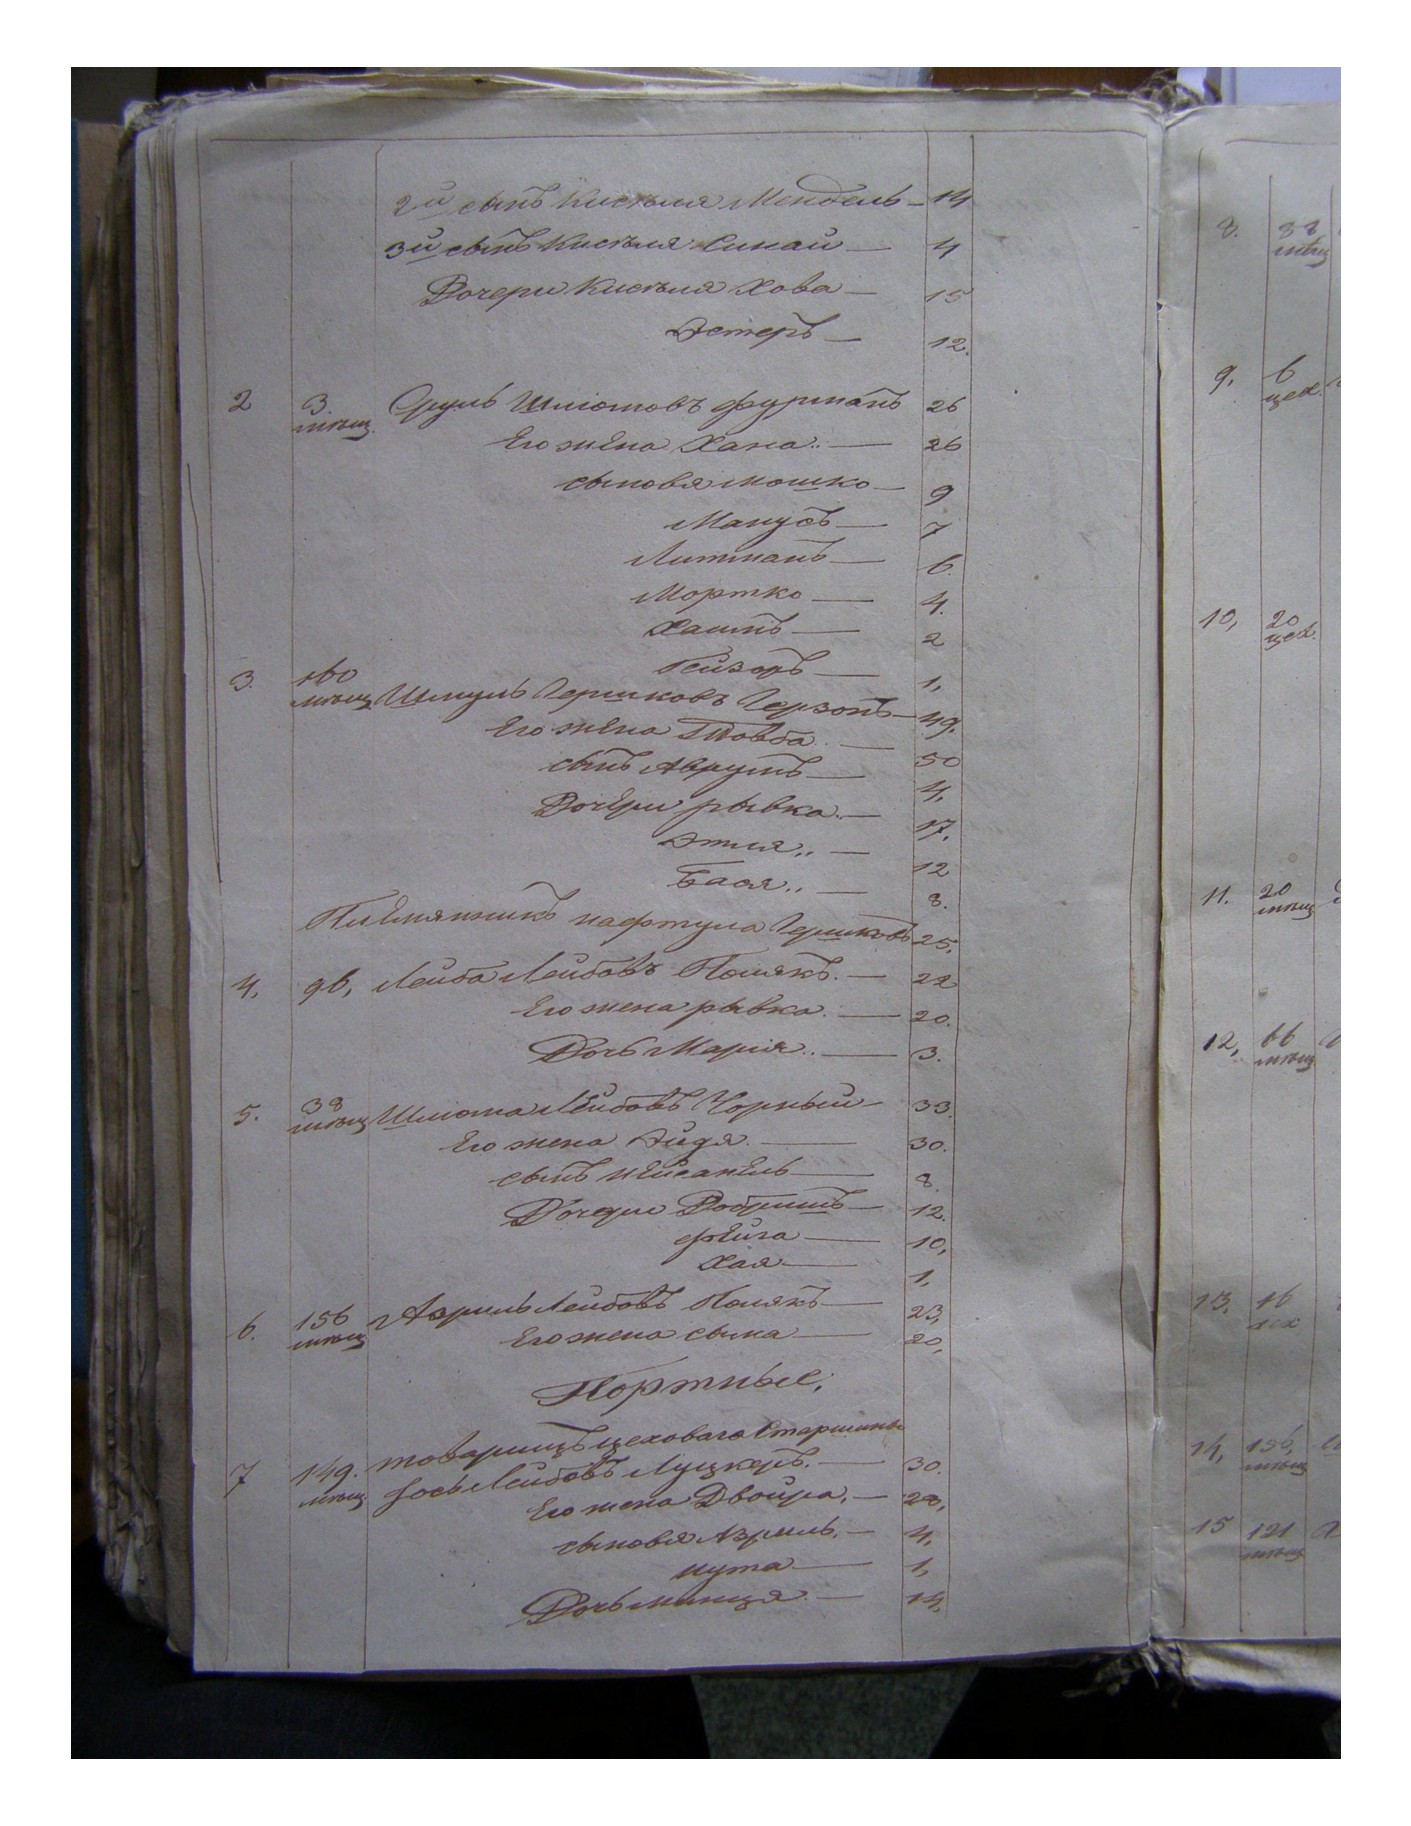 2й сынъ Кисѣля Мендель — 14
3й сынъ Кисѣля Синай — 4
Дочери Кисѣля Хова — 15
Эстеръ — 12.
2 3. мѣщ. Сруль Шлiомовъ Фурманъ 26
Его жена Хана — 26
сыновя Мошко — 9
Манусъ — 7
Литманъ — 6.
Мортко — 4.
Хаимъ — 2
Лейзоръ — 1,
3. 160 мѣщ Шмуль Гершковъ Герзонъ — 49.
Его жена Товба — 50
сынъ Аврумъ — 4,
Дочери рывка — 17.
Этля — 12
Бася — 8.
Племянникъ нафтула Гершковъ 25.
4, 96, Лейба Лейбовъ Полякъ. — 22
Его жена рывка. — 20.
Дочь Марія — 3.
5. 38 мѣщ Шлiома Лейбовъ Чорный — 33.
Его жена Эйдя. — 30.
сынъ — 8.
Дочери Добришъ — 12.
фейга — 10,
Хая — 1,
6. 156 мѣщ Азриль Лейбовъ Полякъ — 23,
Его жена сына — 20,
Портные,
товарищъ цеховаго Старшины
7 149. мѣщ Іось Лейбовъ Луцкеръ. — 30.
Его жена Двойра, — 28,
сыновя Азриль, — 4,
нута — 1,
Дочь минця — 14,
8. 38 мѣщ
9. 6 цех.
10, 20 цех.
11. 20 мѣщ
12, 66 мѣщ
13. 16 цех
14, 156, мѣщ
15 121 мѣщ